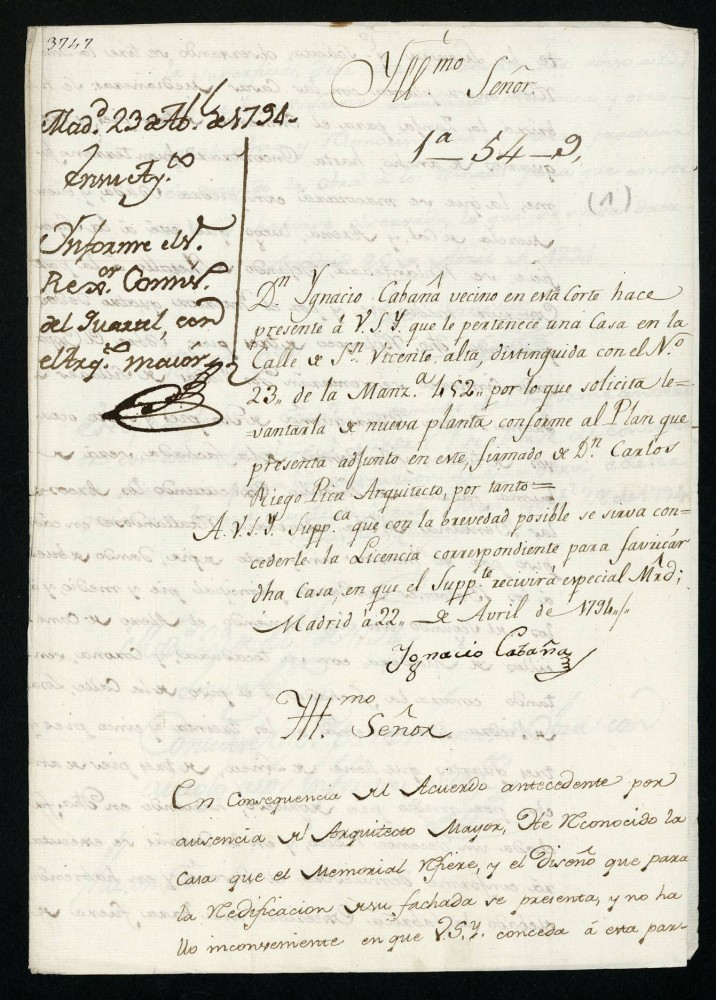 3747
Yll.mo Señor.
1a 54-9,
(1)
Mad.d 23 de Ab.l de 1794.
En su Ay.to
Informe el S.r
Rex.or Comis.
del Quartel, con
el Arq.to mayor
D.n Ygnacio Cabaña vecino en esta Corte hace
presente á V.S.Y. que le pertenece una Casa en la
Calle de S.n Vicente alta, distinguida con el N.o
23,, de la Manz.a 452,, por lo que solicita le=
=vantarla de nueva planta conforme al Plan que
presenta adjunto en este, firmado de D.n Carlos
Riego Pica Arquitecto, por tanto=
A V.S.Y. Supp.ca que con la brevedad posible se sirva con=
cederle la Licencia correspondiente para favricar
dha Casa, en que el Supp.te recivirá especial Mrd;
Madrid á 22,, de Avril de 1794,,/.
Ygnacio Cabaña
Yll.mo Señor
En Consequencia del Acuerdo antecedente por
ausencia del Arquitecto Mayor, He Reconocido la
Casa que el Memorial Refiere, y el Diseño que para
la Redificacion de su fachada se presenta, y no ha
llo inconveniente en que V.S.Y. conceda á esta par-